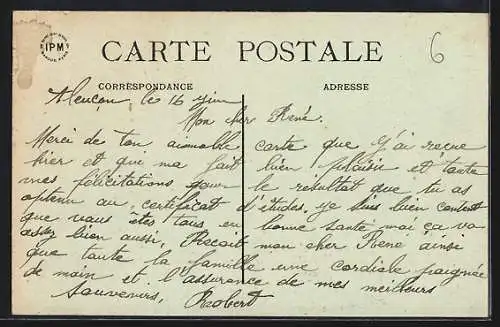 IPM
CARTE POSTALE
6
CORRESPONDANCE
ADRESSE
Alençon, le 16 juin
Mon cher René.
Merci de ton aimable carte que j'ai reçue
hier et qui ma fait bien plaisir et toute
mes félicitations pour le résultat que tu as
obtenu au certificat d'études. je suis bien content
que vous êtes tous en bonne santé moi ça va
assez bien aussi, Reçoit mon cher René ainsi
que toute la famille une cordiale poignée
de main et l'assurance de mes meilleurs
souvenirs, Robert